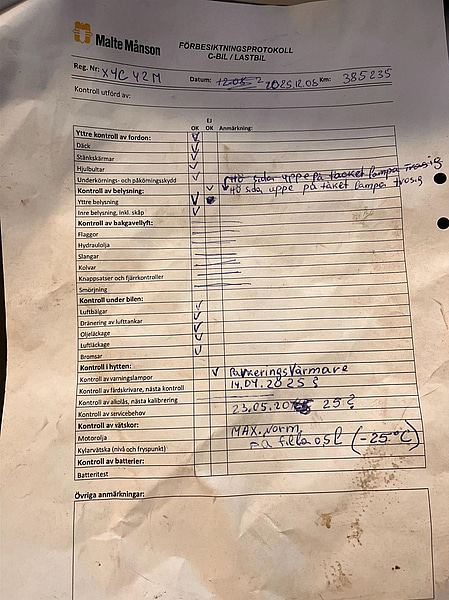 Malte Månson
FÖRBESIKTNINGSPROTOKOLL
C-BIL / LASTBIL
Reg. Nr: XYC 42M Datum: 12.05 2025.12.05 Km: 385235
Kontroll utförd av:
EJ
OK OK Anmärkning:
Yttre kontroll av fordon:
Däck
Stänkskärmar
Hjulbultar
Underkörnings- och påkörningsskydd Hö sida uppe på taket lampa trasig
Kontroll av belysning: Hö sida uppe på taket lampa trasig
Yttre belysning
Inre belysning, inkl. skåp
Kontroll av bakgavellyft:
Flaggor
Hydraulolja
Slangar
Kolvar
Knappsatser och fjärrkontroller
Smörjning
Kontroll under bilen:
Luftbälgar
Dränering av lufttankar
Oljeläckage
Luftläckage
Bromsar
Kontroll i hytten: Parkeringsvärmare
Kontroll av varningslampor 14.04.2025 ?
Kontroll av färdskrivare, nästa kontroll
Kontroll av alkolås, nästa kalibrering 23.05.20 25 ?
Kontroll av servicebehov
Kontroll av vätskor: MAX. Norm.
Motorolja
Kylarvätska (nivå och fryspunkt) (-25°C)
Kontroll av batterier:
Batteritest
Övriga anmärkningar: